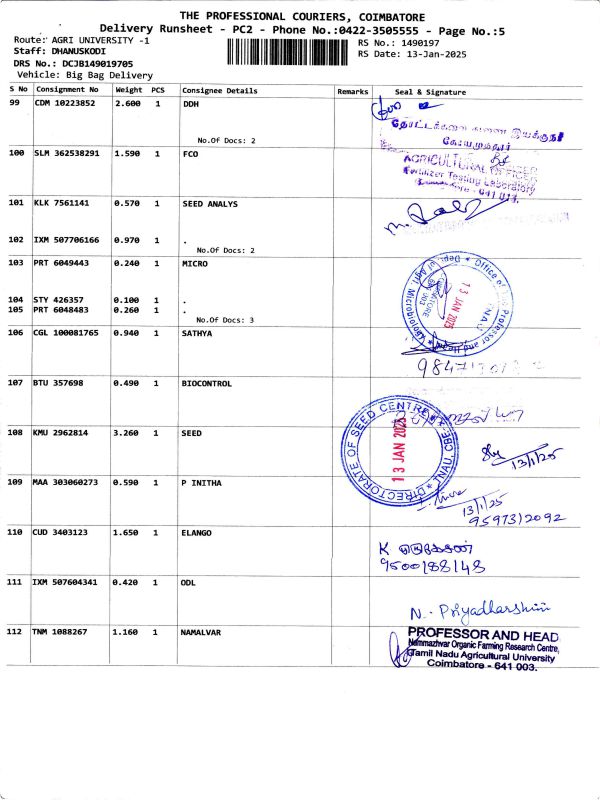 THE PROFESSIONAL COURIERS, COIMBATORE
Delivery Runsheet - PC2 - Phone No.:0422-3505555 - Page No.:5
Route: AGRI UNIVERSITY -1
RS No.: 1490197
Staff: DHANUSKODI
RS Date: 13-Jan-2025
DRS No.: DCJB149019705
Vehicle: Big Bag Delivery
S No Consignment No Weight PCS Consignee Details Remarks Seal & Signature
99 CDM 10223852 2.600 1 DDH
No.Of Docs: 2
தோட்டக்கலை துணை இயக்குநர்
கோயமுத்தூர்
100 SLM 362538291 1.590 1 FCO
AGRICULTURAL OFFICER
Fertilizer Testing Laboratory
641 013.
101 KLK 7561141 0.570 1 SEED ANALYS
102 IXM 507706166 0.970 1 .
No.Of Docs: 2
103 PRT 6049443 0.240 1 MICRO
Office of the Professor and Head
Dept. of Agrl. Microbiology
13 JAN 2025
TNAU
COIMBATORE
641 003
104 STY 426357 0.100 1 .
105 PRT 6048483 0.260 1 .
No.Of Docs: 3
106 CGL 100081765 0.940 1 SATHYA
107 BTU 357698 0.490 1 BIOCONTROL
DIRECTORATE OF SEED CENTRE
TNAU, CBE-3
13 JAN 2025
108 KMU 2962814 3.260 1 SEED
13/1/25
109 MAA 303060273 0.590 1 P INITHA
13/1/25
9597312092
110 CUD 3403123 1.650 1 ELANGO
K முருகேசன்
9500188148
111 IXM 507604341 0.420 1 ODL
N. Priyadharshini
112 TNM 1088267 1.160 1 NAMALVAR
PROFESSOR AND HEAD
Nammazhvar Organic Farming Research Centre,
Tamil Nadu Agricultural University
Coimbatore - 641 003.